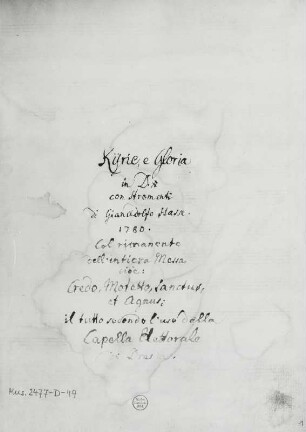 Kÿrie, e Gloria
in D.
con stromenti
di Gianadolfo Hasse
1780.
Col rimanente
dell'intiera Messa
cioè:
Credo, Motetto, Sanctus,
et Agnus;
il tutto secondo l'uso della
Capella Elettorale
di Dresda.
Mus. 2477-D-49
1